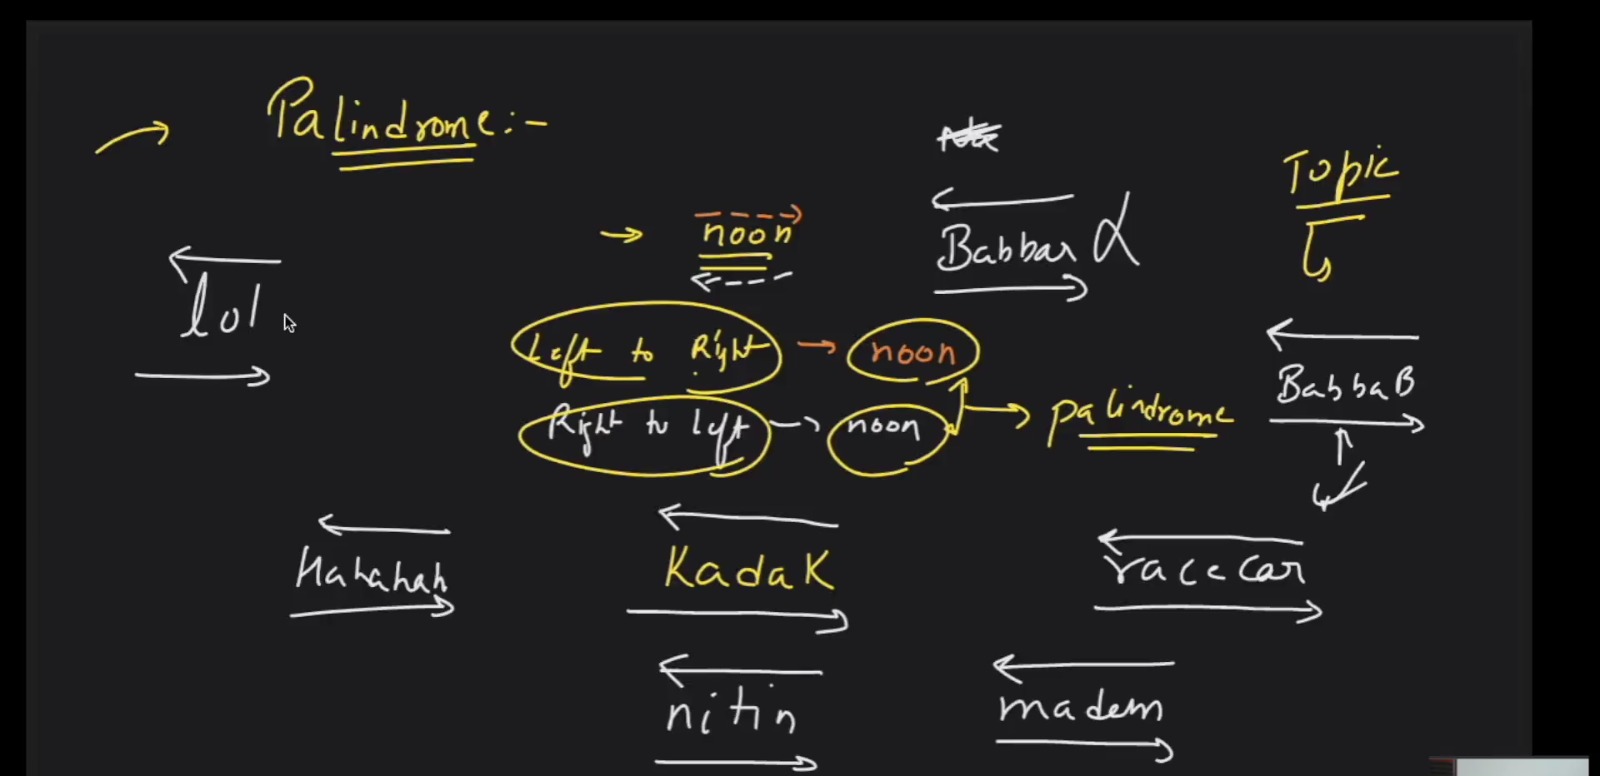 Palindrome:-
Topic
noon
Babbar
lol
Left to Right → noon
BabbaB
Right to left → noon → palindrome
Hahahah
Kadak
racecar
nitin
madem